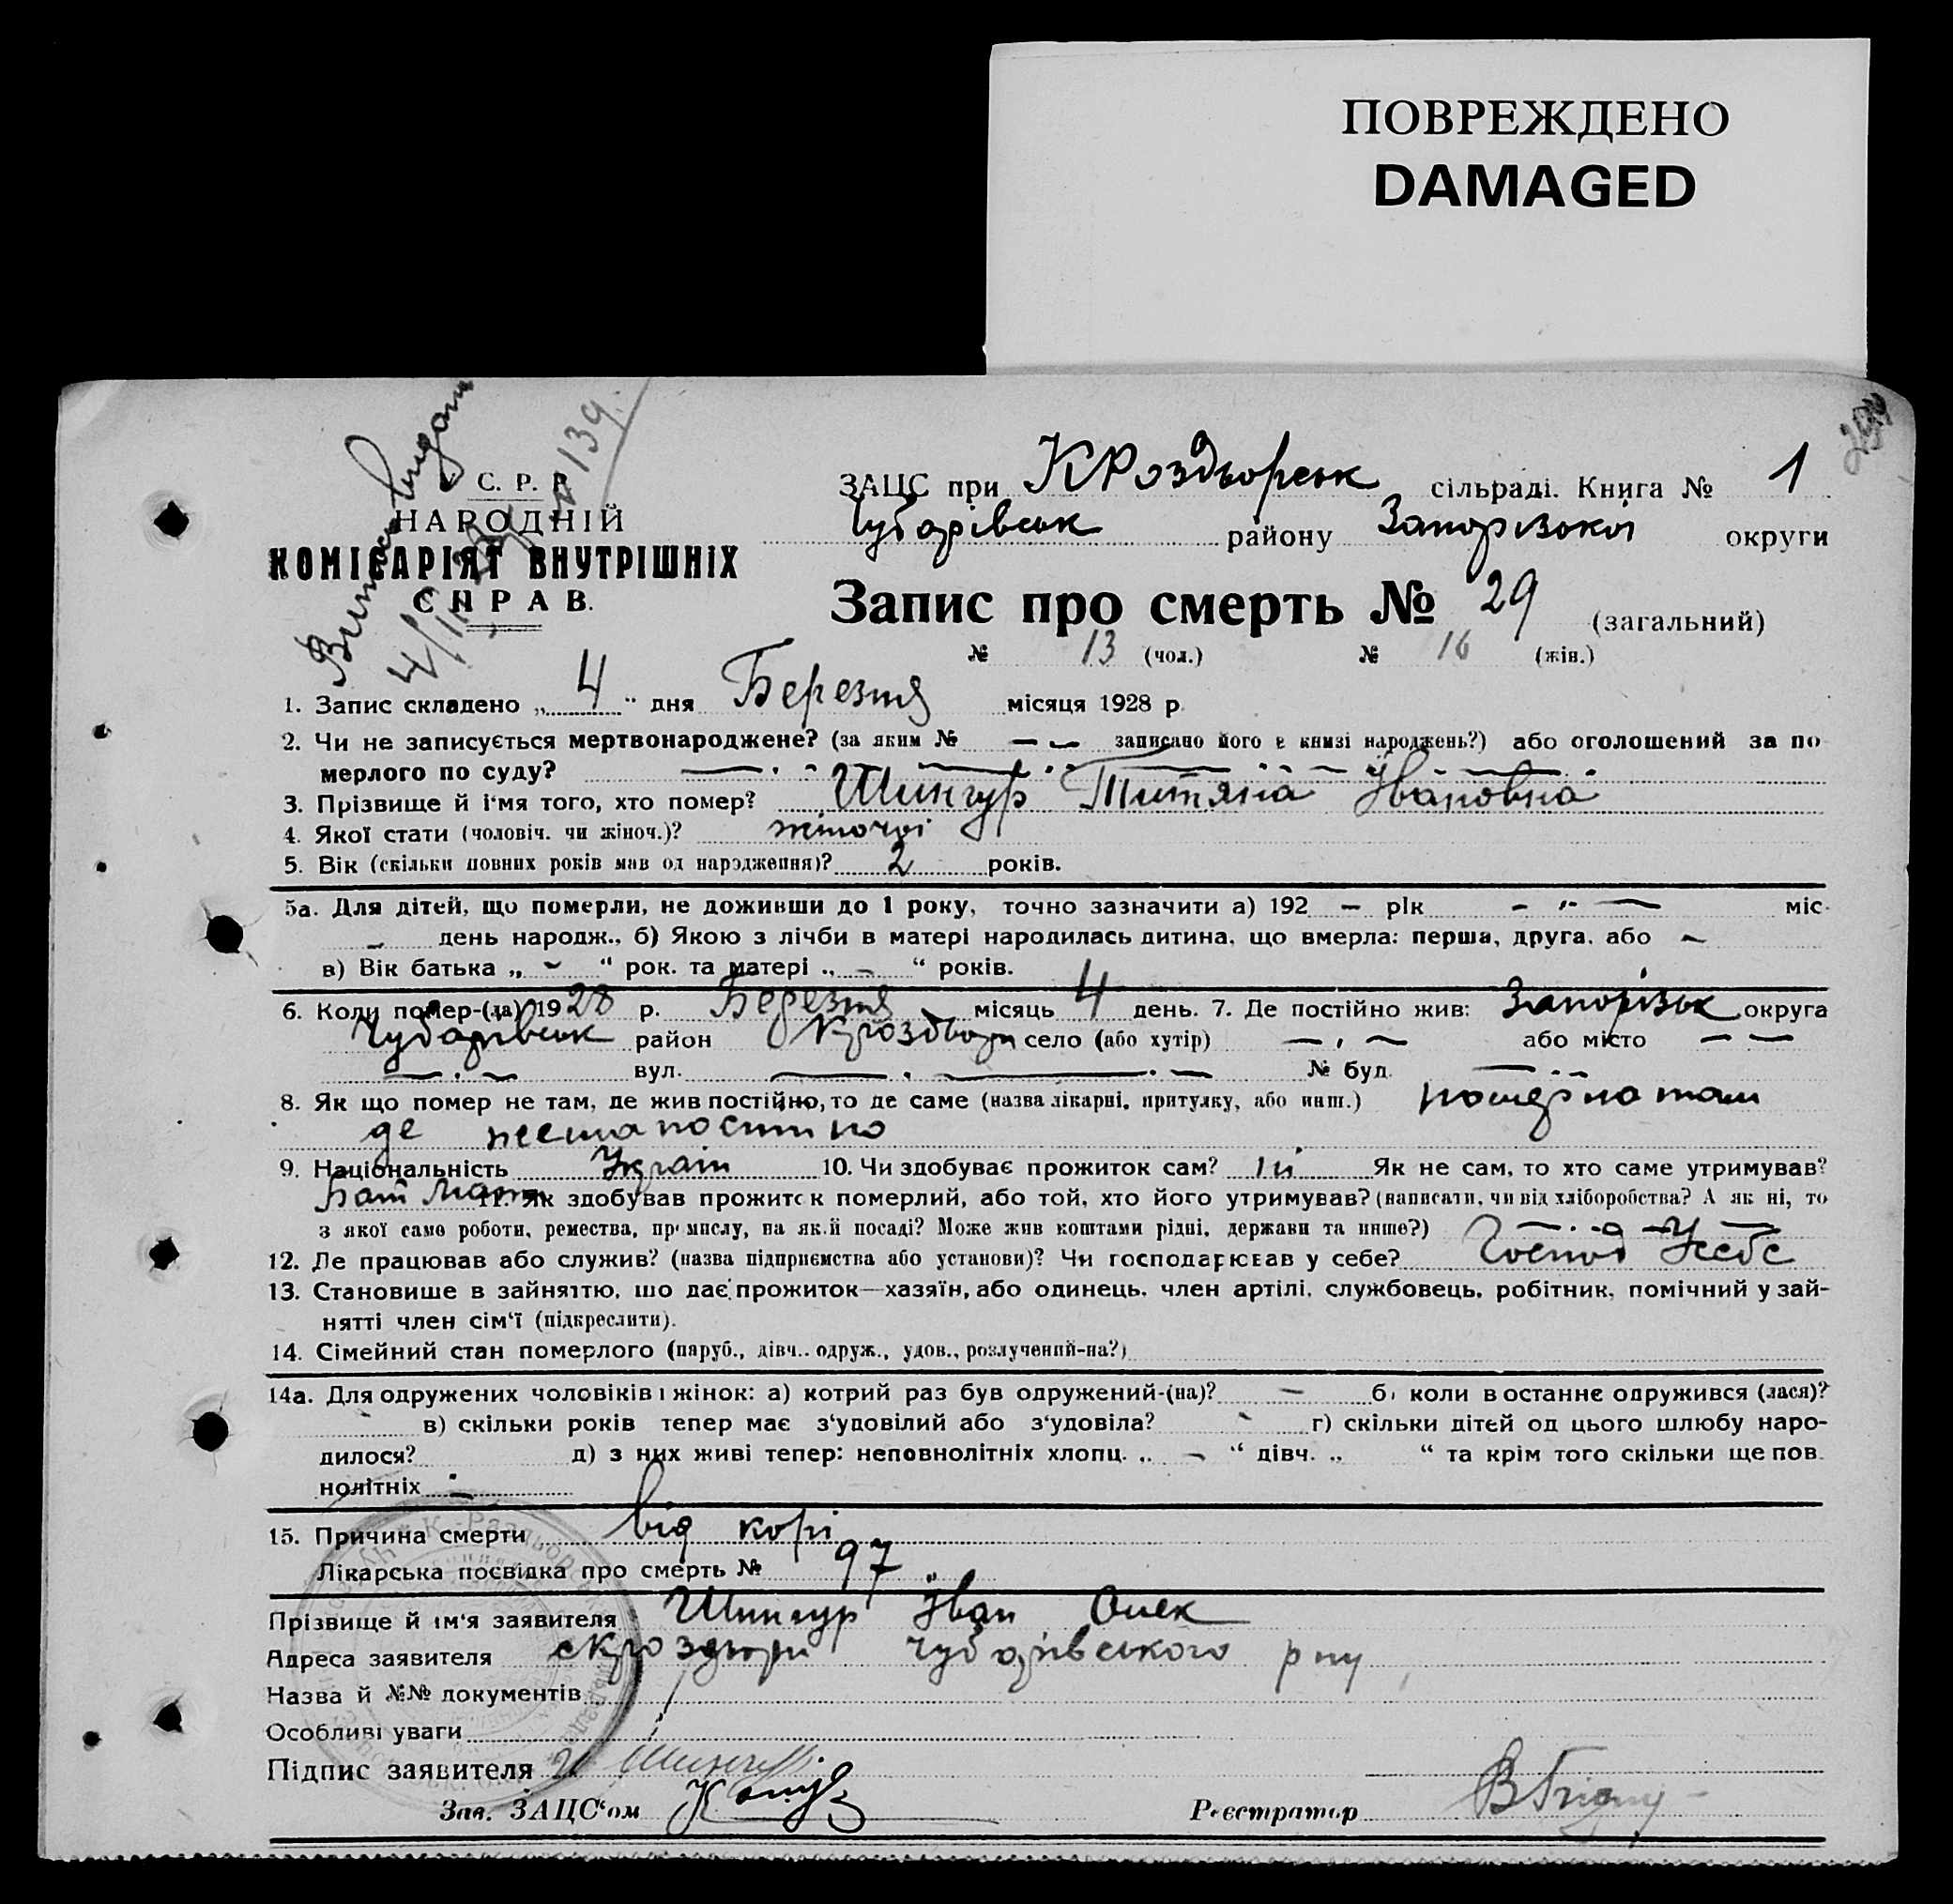 ПОВРЕЖДЕНО
DAMAGED
294
Витяг видан
С. Р. Р.
НАРОДНІЙ
КОМІСАРІЯТ ВНУТРІШНІХ
СПРАВ.
ЗАЦС при КРоздорськ сільраді. Книга № 1
Чубарівськ району Запорізької округи
Запис про смерть № 29 (загальний)
№ 13 (чол.) № 16 (жін.)
1. Запис складено „ 4 “ дня Березня місяця 1928 р.
2. Чи не записується мертвонароджене? (за яким № — — записано його в книзі народжень?) або оголошений за по
мерлого по суду?
3. Прізвище й ім'я того, хто помер? Шингур Титяна Івановна
4. Якої стати (чоловіч. чи жіноч.)? жіночої
5. Вік (скільки повних років мав од народження)? 2 років.
5а. Для дітей, що померли, не доживши до 1 року, точно зазначити а) 192 — рік — „ — міс.
— день народж., б) Якою з лічби в матері народилась дитина, що вмерла: перша, друга, або —
в) Вік батька „ — “ рок. та матері „ — “ років.
6. Коли помер-(ла) 1928 р. Березня місяць 4 день. 7. Де постійно жив: Запорізьк округа
Чубарівськ район Кроздори село (або хутір) — , — або місто — —
— . — вул. — . — . — № буд.
8. Як що помер не там, де жив постійно, то де саме (назва лікарні, притулку, або инш.) там
де жила постіно
9. Національність Україн 10. Чи здобуває прожиток сам? ні Як не сам, то хто саме утримував?
Бат Мати 11. Як здобував прожиток померлий, або той, хто його утримував? (написати, чи від хліборобства? А як ні, то
з якої саме роботи, ремества, промислу, на якій посаді? Може жив коштами рідні, держави та инше?)
12. Де працював або служив? (назва підприємства або установи)? Чи господарював у себе? Господ Усебе
13. Становише в зайняттю, шо дає прожиток—хазяїн, або одинець, член артілі, службовець, робітник, помічний у зай-
нятті член сім'ї (підкреслити).
14. Сімейний стан померлого (паруб., дівч., одруж., удов., розлучений-на?)
14а. Для одружених чоловіків і жінок: а) котрий раз був одружений-(на)? — б) коли в останнє одружився (лася)?
в) скільки років тепер має з'удовілий або з'удовіла? г) скільки дітей од цього шлюбу наро-
дилося? д) з них живі тепер: неповнолітніх хлопц. „ — “ дівч. „ “ та крім того скільки ще пов.
нолітніх —
15. Причина смерти від корі
Лікарська посвідка про смерть № 97
Прізвище й ім'я заявителя Шингур Іван Олек
Адреса заявителя с Кроздори Чубарівського рну
Назва й №№ документів
Особливі уваги
Підпис заявителя Шингур
Зав. ЗАЦС'ом
Реєстратор